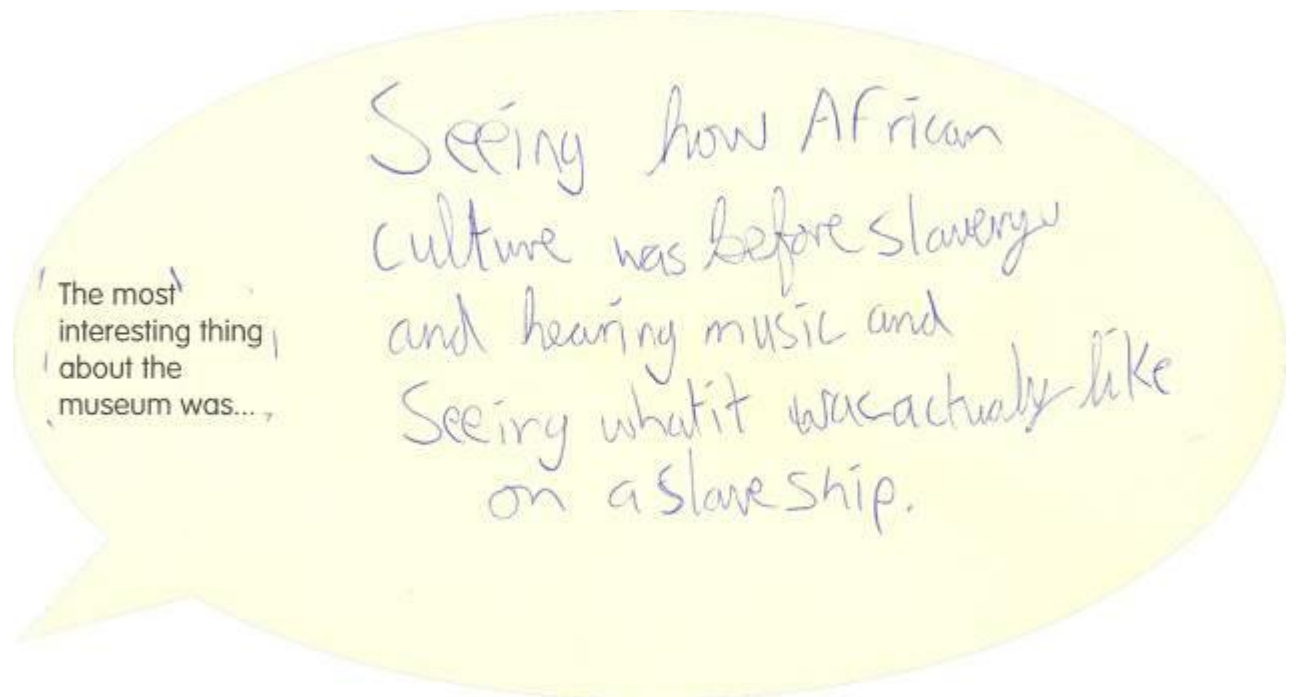 The most
interesting thing
about the
museum was...
Seeing how African
culture was before slavery
and hearing music and
Seeing what it was actualy like
on a slave ship.